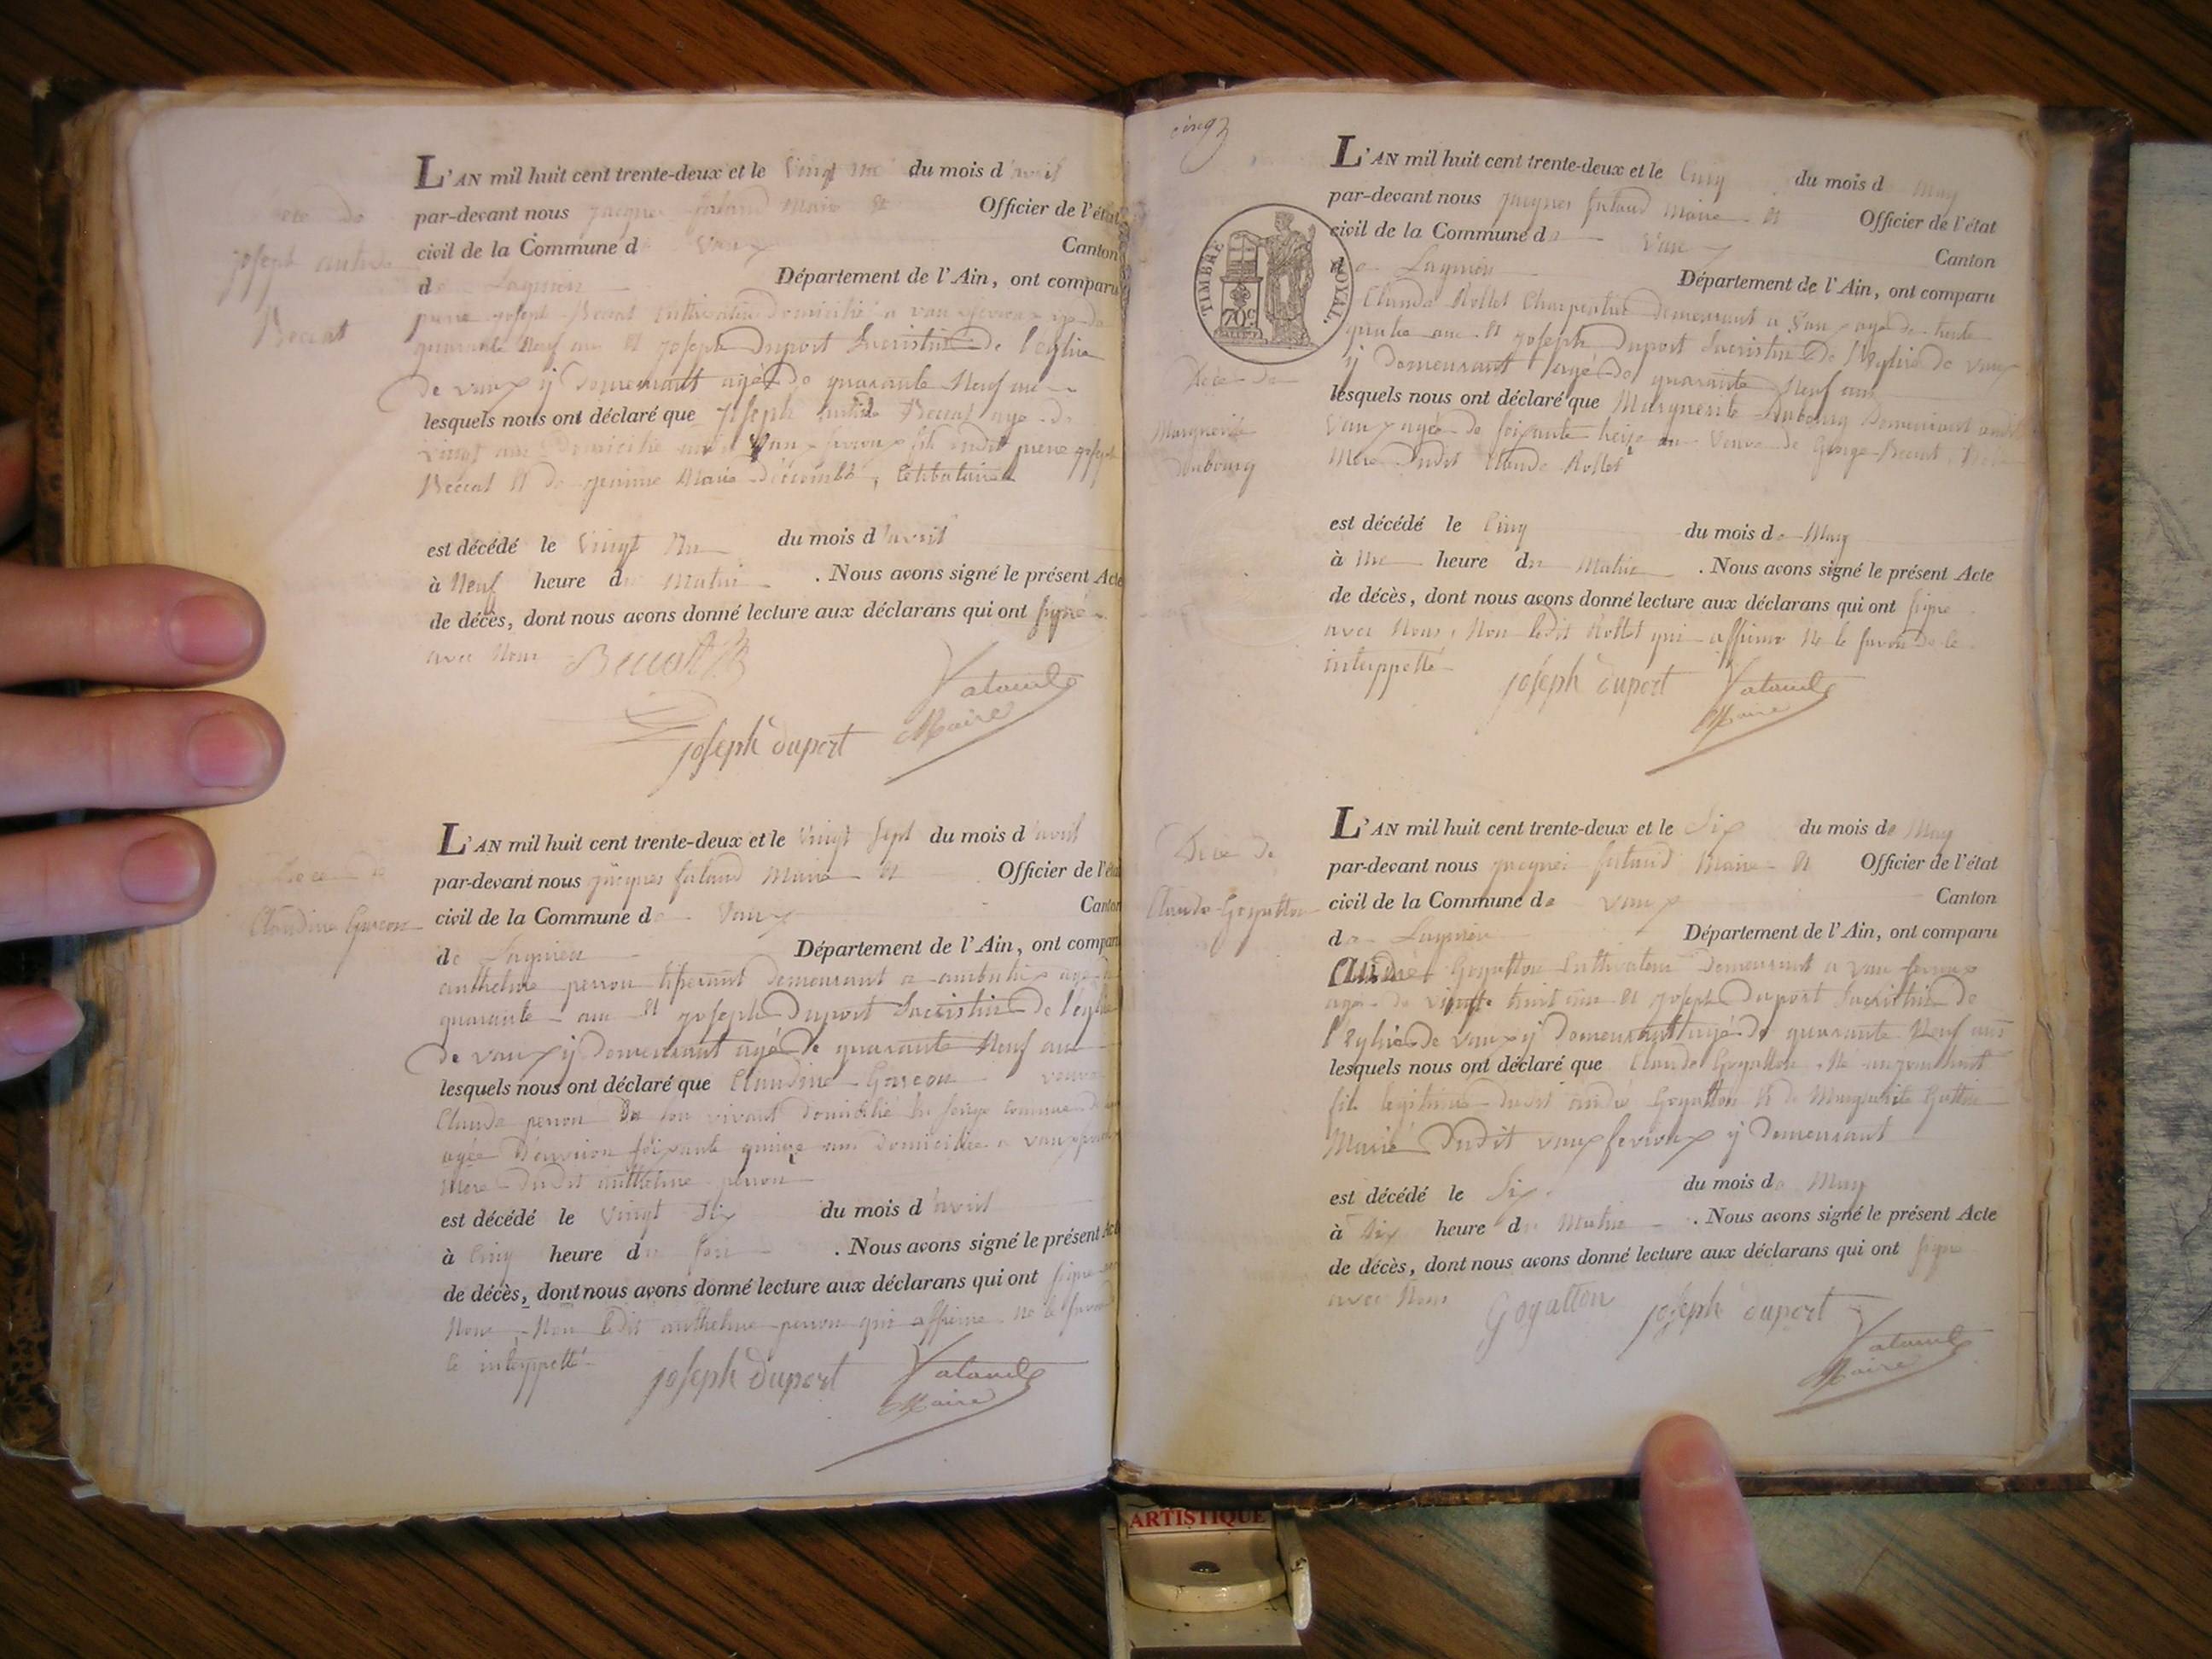 Joseph
Beccat
L'AN mil huit cent trente-deux et le Vingt un du mois d'avril
par-devant nous jacques Maire et Officier de l'état
civil de la Commune d Vaux Canton
de Lagnieu Département de l'Ain, ont comparu
pierre joseph Beccat cultivateur domicilié a vaux
quarante neuf ans et joseph Duport Sacristin de l'eglise
de vaux ij demeurant agé de quarante Neuf ans
lesquels nous ont déclaré que joseph Beccat age de
vingt ans Domicilié vaux fevroux fils dudit pierre joseph
Beccat et de Marie
est décédé le Vingt un du mois d'avril
à Neuf heure du Matin . Nous avons signé le présent Acte
de décès, dont nous avons donné lecture aux déclarans qui ont signé
avec Nous Beccat
joseph duport
Maire
Claudine Garcon
L'AN mil huit cent trente-deux et le Vingt Sept du mois d'avril
par-devant nous jacques Maire et Officier de l'état
civil de la Commune de Vaux Canton
de Lagnieu Département de l'Ain, ont comparu
anthelme perron tisserant demeurant a ambutrix agé de
quarante ans et joseph Duport Sacristin de l'eglise
de vaux ij demeurant agé de quarante Neuf ans
lesquels nous ont déclaré que Claudine Garcon veuve
Claude perron en son vivant domicilié commune
agée d'environ soixante quinze ans Domiciliée a vaux
Mère dudit anthelme perron
est décédé le Vingt Six du mois d'avril
à Cinq heure du soir . Nous avons signé le présent Acte
de décès, dont nous avons donné lecture aux déclarans qui ont signé
Nous Non ledit anthelme perron qui affirme ne le savoir
le
joseph duport
Maire
cinq
TIMBRE ROYAL.
70 c
Décé de
Marguerite
Dubourg
L'AN mil huit cent trente-deux et le Cinq du mois de May
par-devant nous jacques Maire et Officier de l'état
civil de la Commune de Vaux Canton
de Lagnieu Département de l'Ain, ont comparu
Claude Rollet Charpentier demeurant a Vaux agé de trente
quatre ans et joseph Duport Sacristin de l'Eglise de vaux
ij demeurant agé de quarante Neuf ans
lesquels nous ont déclaré que Marguerite Dubourg Demeurant audit
Vaux agée de soixante treize ans Veuve de Beccat
Mère dudit Claude Rollet
est décédé le Cinq du mois de May
à une heure du Matin . Nous avons signé le présent Acte
de décès, dont nous avons donné lecture aux déclarans qui ont signé
avec Nous, Non ledit Rollet qui affirme ne le savoir de ce
interppellé
joseph duport
Maire
Décé de
Claude Goyatton
L'AN mil huit cent trente-deux et le Six du mois de May
par-devant nous jacques Maire et Officier de l'état
civil de la Commune de vaux Canton
de Lagnieu Département de l'Ain, ont comparu
André Goyatton Cultivateur demeurant a vaux fevroux
agé de vingt huit ans et joseph Duport Sacristin de
l'Eglise de vaux ij demeurant agé de quarante Neuf ans
lesquels nous ont déclaré que Claude Goyatton
fils légitime dudit andré Goyatton et de Marguerite
Marié Dudit vaux fevroux ij demeurant
est décédé le Six du mois de May
à Six heure du Matin . Nous avons signé le présent Acte
de décès, dont nous avons donné lecture aux déclarans qui ont signé
avec Nous Goyatton joseph duport
Maire
ARTISTIQUE